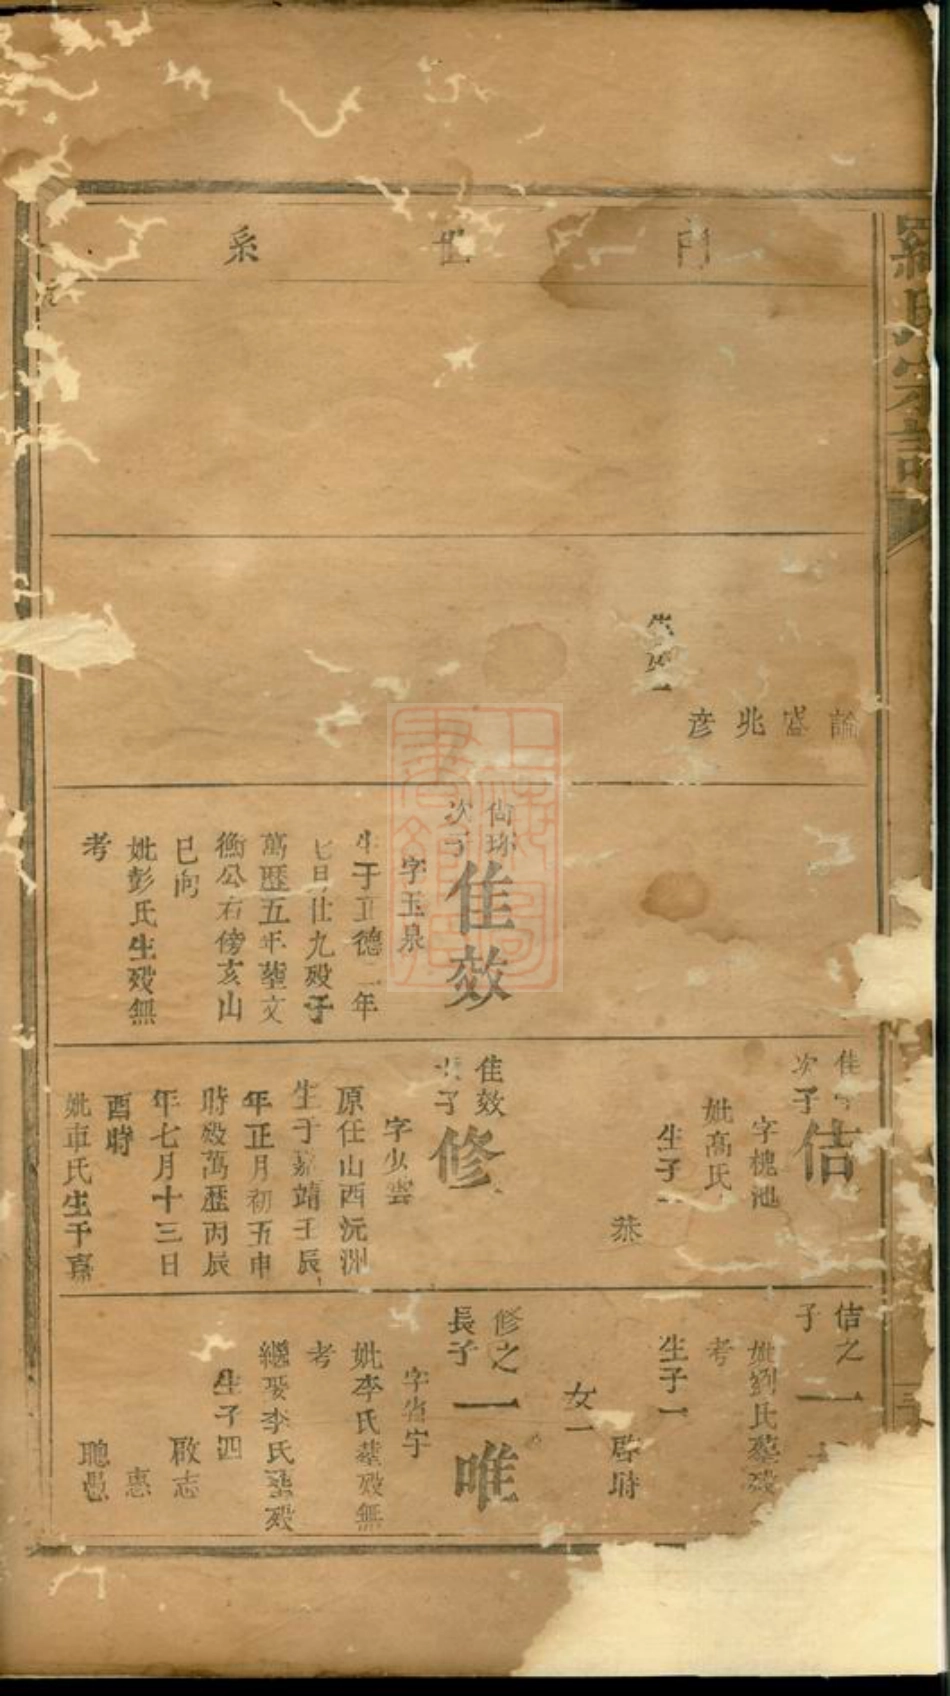 羅氏宗譜
門 世 系
論
盛
兆
彦
生
尙珎
次子
佳效
字玉泉
生于正德二年
七日仕九殁于
萬歷五年塟文
衡公右傍亥山
巳向
妣彭氏生殁無
考
佳
次子
佶
字槐池
妣高氏
生子一
恭
佳效
子
修
字少雲
原任山西沅洲
生于嘉靖壬辰
年正月初五申
時殁萬歷丙辰
年七月十三日
酉時
妣車氏生于嘉
佶之
子
一
妣劉氏塟殁
考
生子一
啓
女一
修之
長子
一唯
字省宇
妣李氏塟殁無
考
繼娶李氏塟殁
生子四
啟志
惠
聰愚